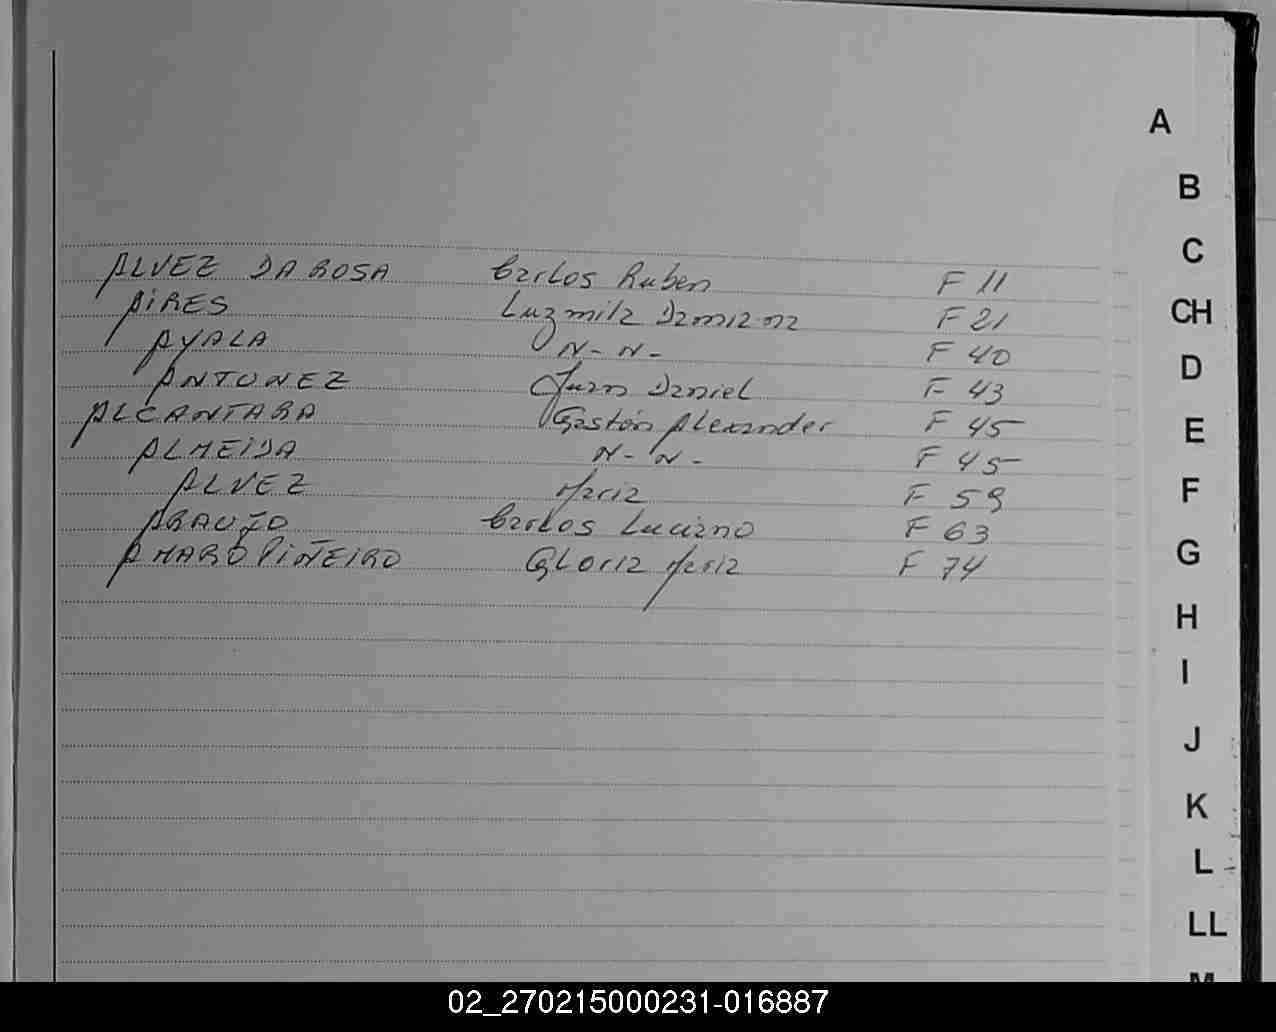 A
B
C
ALVEZ DA ROSA Carlos Ruben F 11
CH
AIRES Luzmila Damiana F 21
AYALA N-N- F 40
D
ANTUNEZ Juan Daniel F 43
ALCANTARA Gastón Alexander F 45
E
ALMEIDA N-N- F 45
ALVEZ Maria F 59
F
ARAUJO Carlos Luciano F 63
AMARO PIÑEIRO Gloria Maria F 74
G
H
I
J
K
L
LL
M
02_270215000231-016887